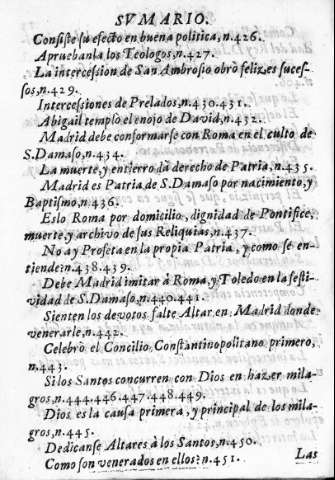 SVMARIO.
Consiste su efecto en buena politica, n.426.
Apruebanla los Teologos, n.427.
La intercession de San Ambrosio obrò felizes suces-
sos, n.429.
Intercessiones de Prelados, n.430.431.
Abigail templo el enojo de David, n.432.
Madrid debe conformarse con Roma en el culto de
S.Damaso, n.434.
La muerte, y entierro dà derecho de Patria, n.435.
Madrid es Patria de S.Damaso por nacimiento, y
Baptismo, n.436.
Eslo Roma por domicilio, dignidad de Pontifice,
muerte, y archivo de sus Reliquias, n.437.
No ay Profeta en la propia Patria, y como se en-
tiende? n.438.439.
Debe Madrid imitar à Roma, y Toledo en la festi-
vidad de S.Damaso, n.440.441.
Sienten los devotos falte Altar en Madrid donde
venerarle, n.442.
Celebrò el Concilio Constantinopolitano primero,
n.443.
Si los Santos concurren con Dios en hazer mila-
gros, n.444.446.447.448.449.
Dios es la causa primera, y principal de los mila-
gros, n.445.
Dedicanse Altares à los Santos, n.450.
Como son venerados en ellos? n.451.
Las